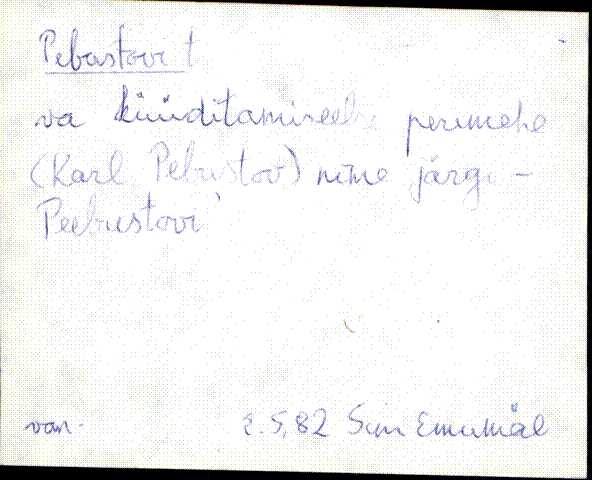 Pebastovi t
va küüditamiseelse peremehe
(Karl Pebustov) nime järgi -
Peebustovi
van. E. S, 82 Sim Emumäe